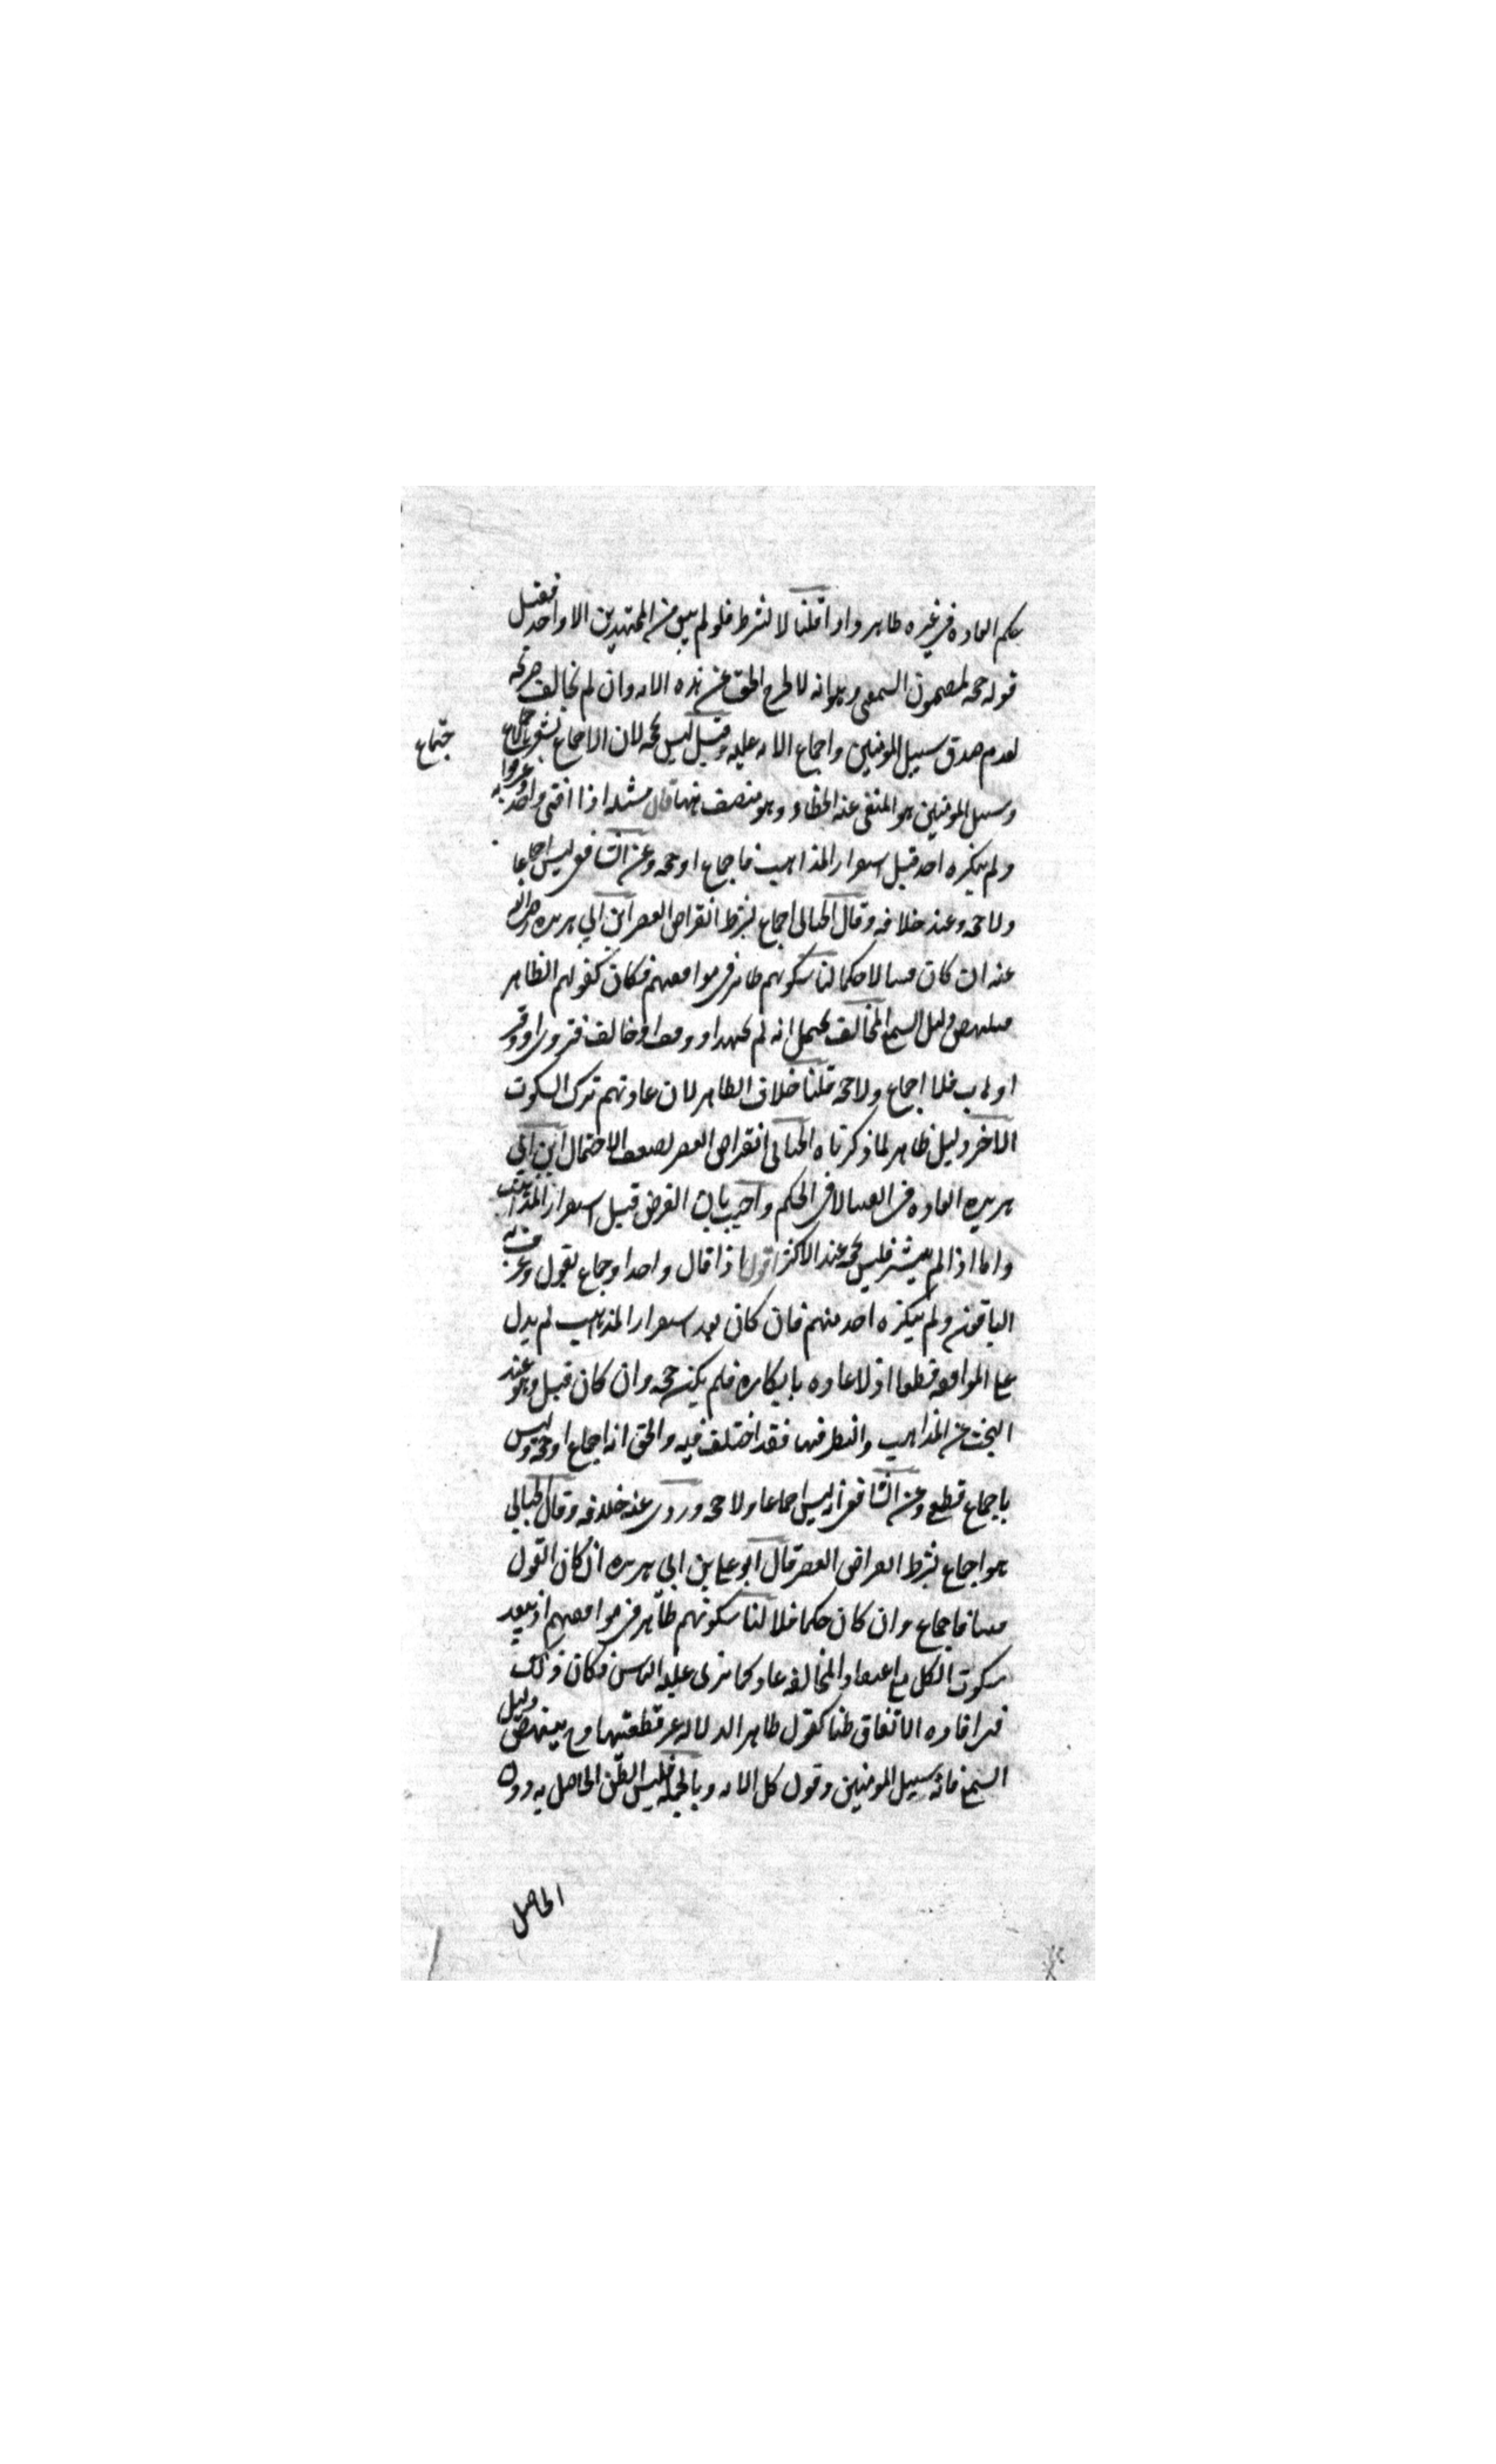 بحكم العاده في غيره ظاهر واذا قلنا لا نشرط فلو لم يبق من المجتهدين الا واحد فقيل
قوله حجه لمضمون السمعي وهو انه لا يخرج الحق عن هذه الامه وان لم يخالف صريحه
لعدم صدق سبيل المومنين واجماع الامه عليه وقيل ليس بحجه لان الاجماع يشعر بالاجتماع
جتماع
وسبيل المومنين هو المنفي عنه الخطاء وهو منتف ههنا قال مسئله اذا افتى واحد وعرفوا به
ولم ينكره احد قبل استقرار المذاهب فاجماع او حجه وعن الشافعي ليس اجماعا
ولا حجه وعنه خلافه وقال الجبائي اجماع بشرط انقراض العصر ابن ابي هريره رضي الله
عنه ان كان فتيا لا حكما لنا سكوتهم ظاهر في موافقتهم فكان كقولهم الظاهر
فينتهض دليل السمع المخالف يحتمل انه لم يجتهد او وقف او خالف فتروى او وقر
او هاب فلا اجماع ولا حجه قلنا خلاف الظاهر لان عادتهم ترك السكوت
الاخر دليل ظاهر لما ذكرناه الجبائي انقراض العصر لضعف الاحتمال ابن ابي
هريره العاده في الفتيا لا في الحكم واجيب بان الفرض قبل استقرار المذاهب
واما اذا لم ينتشر فليس بحجه عند الاكثر اقول اذا قال واحد او جماعه بقول وعرف به
الباقون ولم ينكره احد منهم فان كان بعد استقرار المذاهب لم يدل
على الموافقه قطعا اذ لا عاده بانكاره فلم يكن حجه وان كان قبله وهو عند
البحث عن المذاهب والنظر فيها فقد اختلف فيه والحق انه اجماع او حجه وليس
باجماع قطعي وعن الشافعي انه ليس اجماعا ولا حجه وروى عنه خلافه وقال الجبائي
هو اجماع بشرط انقراض العصر قال ابو علي بن ابي هريره ان كان القول
فتيا فاجماع وان كان حكما فلا لنا سكوتهم ظاهر في موافقتهم اذ يبعد
سكوت الكل مع اعتقاد المخالفه عاده كما نرى عليه الناس فكان ذلك
في افاده الاتفاق ظنا كقول ظاهر الدلاله غير قطعيها وح ينتهض دليل
السمع فانه سبيل المومنين وقول كل الامه وبالجمله فليس الظن الحاصل به دون
الحاصل